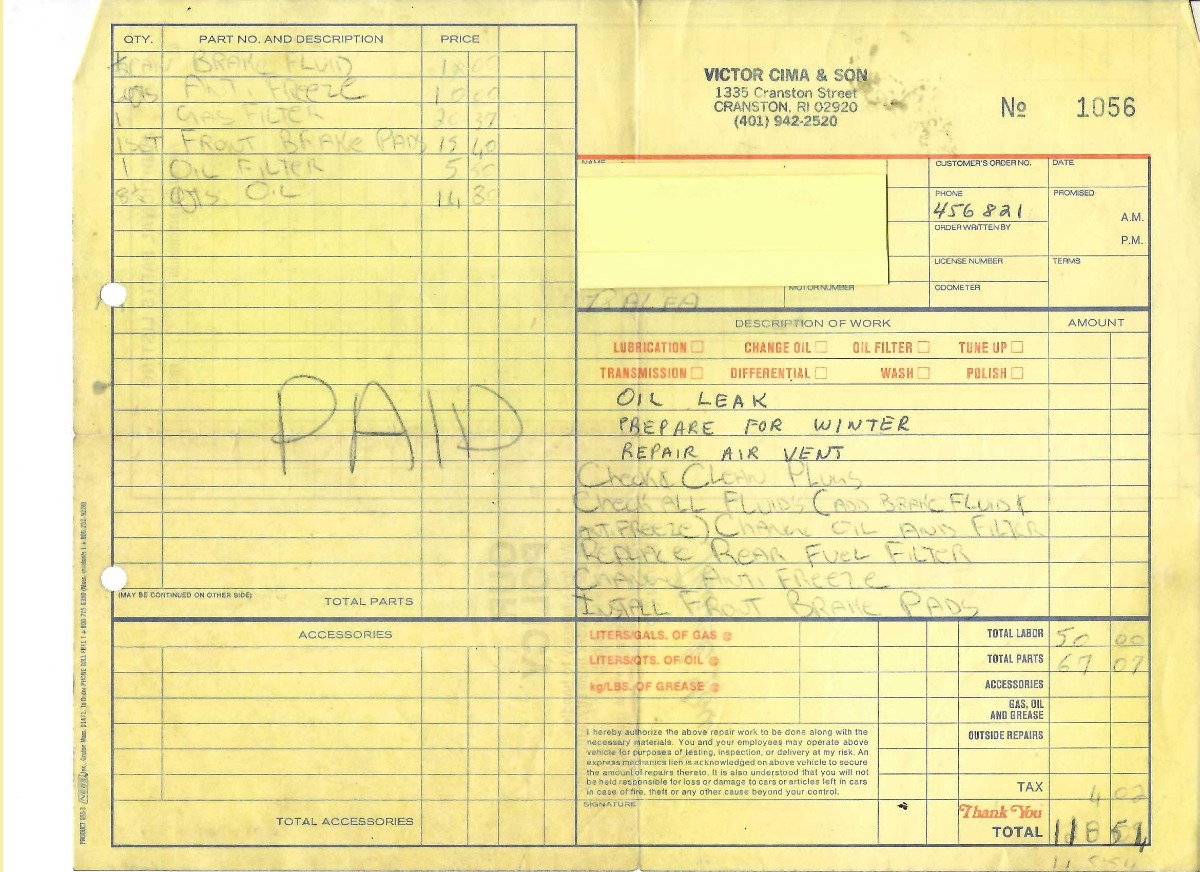 QTY. PART NO. AND DESCRIPTION PRICE
BRAKE FLUID
QTS ANTI FREEZE 10 00
1 GAS FILTER 20 37
1 SET FRONT BRAKE PADS 15 40
1 OIL FILTER 5
8½ QTS OIL 14 30
PAID
(MAY BE CONTINUED ON OTHER SIDE)
TOTAL PARTS
ACCESSORIES
TOTAL ACCESSORIES
VICTOR CIMA & SON
1335 Cranston Street
CRANSTON, RI 02920
(401) 942-2520
No 1056
NAME
CUSTOMER'S ORDER NO. DATE
PHONE PROMISED
456 821
A.M.
ORDER WRITTEN BY
P.M.
LICENSE NUMBER TERMS
MOTOR NUMBER ODOMETER
ALFA
DESCRIPTION OF WORK AMOUNT
LUBRICATION CHANGE OIL OIL FILTER TUNE UP
TRANSMISSION DIFFERENTIAL WASH POLISH
OIL LEAK
PREPARE FOR WINTER
REPAIR AIR VENT
Check & CLEAN PLUGS
Check ALL FLUIDS (ADD BRAKE FLUID &
ANTI FREEZE) CHANGE OIL AND FILTER
REPLACE REAR FUEL FILTER
CHANGE ANTI FREEZE
INSTALL FRONT BRAKE PADS
LITERS/GALS. OF GAS @
LITERS/QTS. OF OIL @
kg/LBS. OF GREASE @
TOTAL LABOR 50 00
TOTAL PARTS 67 07
ACCESSORIES
GAS, OIL
AND GREASE
OUTSIDE REPAIRS
I hereby authorize the above repair work to be done along with the
necessary materials. You and your employees may operate above
vehicle for purposes of testing, inspection, or delivery at my risk. An
express mechanics lien is acknowledged on above vehicle to secure
the amount of repairs thereto. It is also understood that you will not
be held responsible for loss or damage to cars or articles left in cars
in case of fire, theft or any other cause beyond your control.
SIGNATURE
TAX 4 02
Thank You
TOTAL 118 54